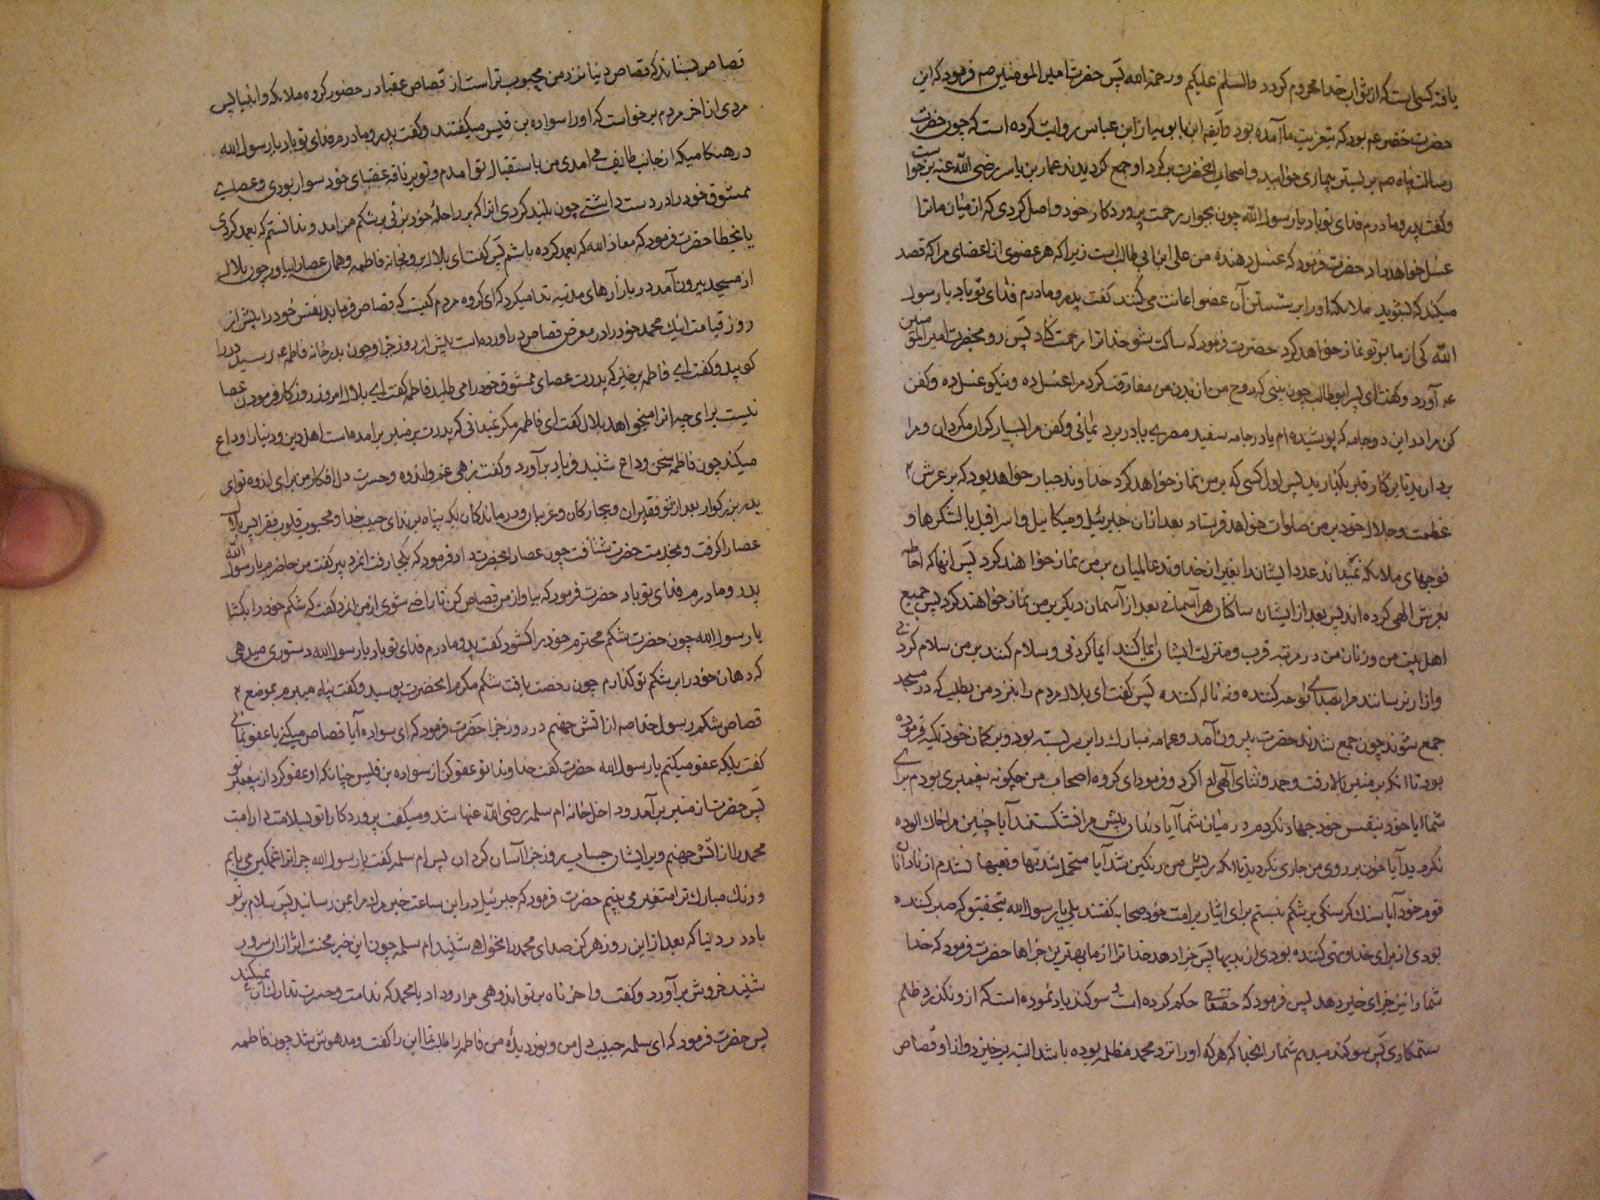 یافته کسی است که از ثواب خدا محروم گردد والسلم علیکم و رحمة الله پس حضرت امیر المومنین صم فرمود که این
حضرت خضر عم بود که بتعزیت ما آمده بود و ایضه ابن بابویه از ابن عباس روایت کرده است که چون حضرت
رسالت پناه صم بر بستر بیماری خوابید و اصحاب انحضرت بر کرد او جمع کردیدند عمار بن یاسر رضی الله عنه برخواست
و کفت پدر و مادرم فدای تو باد یا رسول الله چون بجوار رحمت پروردکار خود واصل کردی که از میان ما ترا
غسل خواهد داد حضرت فرمود که غسل دهنده من علی ابن ابی طالب است زیرا که هر عضوی از اعضای مرا که قصد
میکند که بشوید ملائکه او را بر شستن آن عضو اعانت می کنند کفت پدر و مادرم فدای تو باد یا رسول
الله کی از ما بر تو نماز خواهد کرد حضرت فرمود که ساکت شو خدا ترا رحمت کناد پس رو بحضرت امیر المومنین
عه آورد و کفت ای پسر ابو طالب چون ببینی که روح من از بدن من مفارقت کرد مرا غسل ده و نیکو غسل ده و کفن
کن مرا در این دو جامه که پوشیده ام یا در جامه سفید مصری یا در برد یمانی و کفن مرا بسیار کران مکردان و مرا
بردارید تا بر کنار قبر بکذارید پس اول کسی که بر من نماز خواهد کرد خداوند جبار خواهد بود که بر عرش
عظمت و جلال خود بر من صلوات خواهد فرستاد بعد از ان جبرئیل و میکائیل و اسرافیل با لشکرها و
فوجهای ملائکه که نمیداند عدد ایشان را بغیر از خداوند عالمیان بر من نماز خواهند کرد پس انها که احاطه
بعرش الهی کرده اند پس بعد از ایشان ساکنان هر آسمانی بعد از آسمان دیکر بر من نماز خواهند کرد پس جمیع
اهل بیت من و زنان من در مرتبه قرب و منزلت ایشان ایما کنند ایما کردنی و سلام کنند بر من سلام کردنی
و ازار نرسانند مرا بصدای نوحه کننده و نه ناله کننده پس کفت ای بلال مردم را بنزد من بطلب که در مسجد
جمع شوند چون جمع شدند حضرت بیرون آمد و عمامه مبارک را بر سر بسته بود و بر کمان خود تکیه فرموده
بود تا انکه بر منبر بالا رفت و حمد و ثنای الهی ادا کرد و فرمود ای کروه اصحاب من چکونه پیغمبری بودم برای
شما ایا خود بنفس خود جهاد نکردم در میان شما آیا دندان پیش مرا نشکستند آیا جبین مرا خاک الوده
نکردید آیا خون بر روی من جاری نکردید تا انکه ریش من رنکین شد آیا متحمل شدتها و تعبها نشدم از نادانان
قوم خود آیا سنک کرسنکی بر شکم نبستم برای ایثار بر امت خود صحابه کفتند بلی یا رسول الله بتحقیق که صبر کننده
بودی از برای خدا و نهی کننده بودی از بدیها پس جزا دهد خدا ترا از ما بهترین جزاها حضرت فرمود که خدا
شما را نیز جزای خیر دهد پس فرمود که حقتعالی حکم کرده است و سوکند یاد نموده است که از او نکذرد ظلم
ستمکاری پس سوکند میدهم شما را بخدا که هر که او را نزد محمد مظلمه بوده باشد البته برخیزد و از او قصاص
قصاص بستاند که قصاص دنیا نزد من محبوب تر است از قصاص عقبا در حضور کروه ملائکه و انبیا پس
مردی از اخر مردم برخواست که او را سواده بن قیس میکفتند و کفت پدر و مادرم فدای تو باد یا رسول الله
در هنکامیکه از جانب طایف می امدی من باستقبال تو امدم و تو بر ناقه عضبای خود سوار بودی و عصای
ممشوق خود را در دست داشتی چون بلند کردی انرا که بر راحلهٔ خود بزنی بر شکم من امد و ندانستم که بعمد کردی
یا بخطا حضرت فرمود که معاذ الله که بعمد کرده باشم پس کفت ای بلال برو بخانه فاطمه و همان عصا را بیاور چون بلال
از مسجد بیرون آمد در بازارهای مدینه ندا میکرد که ای کروه مردم کیست که قصاص فرماید نفس خود را پیش از
روز قیامت اینک محمد خود را در معرض قصاص در اورده است پیش از روز جزا و چون بدر خانه فاطمه عه رسید در را
کوبید و کفت ای فاطمه برخیز که پدرت عصای ممشوق خود را می طلبد فاطمه کفت ای بلال امروز روز کار فرمودن عصا
نیست برای چه انرا میخواهد بلال کفت ای فاطمه مکر نمیدانی که پدرت بر منبر برامده است اهل دین و دنیا را وداع
میکند چون فاطمه سخن وداع شنید فریاد برآورد و کفت زهی غم و اندوه و حسرت دل افکار من برای اندوه تو ای
پدر بزرکوار بعد از تو فقیران و بیچارکان و غریبان و درماندکان بکه پناه برند ای حبیب خدا و محبوب قلوب فقرا پس بلال
عصا را کرفت و بخدمت حضرت شتافت چون عصا را بحضرت داد فرمود که بکجا رفت انمرد پیر کفت من حاضرم یا رسول الله
پدر و مادرم فدای تو باد حضرت فرمود که بیا و از من قصاص کن تا راضی شوی از من انمرد کفت که شکم خود را بکشا
یا رسول الله چون حضرت شکم محترم خود را کشود کفت پدر و مادرم فدای تو باد یا رسول الله دستوری میدهی
که دهان خود را بر شکم تو کذارم چون رخصت یافت شکم مکرم انحضرت بوسید و کفت پناه میبرم بموضع
قصاص شکم رسول خدا صم از اتش جهنم در روز جزا حضرت فرمود که ای سواده آیا قصاص میکنی یا عفو نمائی
کفت بلکه عفو میکنم یا رسول الله حضرت کفت خداوندا تو عفو کن از سواده بن قیس چنانکه او عفو کرد از پیغمبر تو
پس حضرت از منبر بزیر آمد و داخل خانه ام سلمه رضی الله عنها شد و میکفت پروردکارا تو بسلامت دار امت
محمد را از اتش جهنم و بر ایشان حساب روز جزا آسان کردان پس ام سلمه کفت یا رسول الله چرا ترا غمکین می یابم
و رنک مبارک ترا متغیر می بینم حضرت فرمود که جبرئیل در این ساعت خبر مرک مرا بمن رسانید پس سلام بر تو
باد در دنیا که بعد از این روز هرکز صدای محمد را نخواهی شنید ام سلمه چون این خبر محنت اثر از ان سرور
شنید خروش برآورد و کفت وا حزناه بر تو اندوهی مرا رو داد یا محمد که ندامت و حسرت تدارک ان نمیکند
پس حضرت فرمود که ای سلمه حبیب دل من و نور دیدهٔ من فاطمه را طلب نما این را کفت و مدهوش شد چون فاطمه